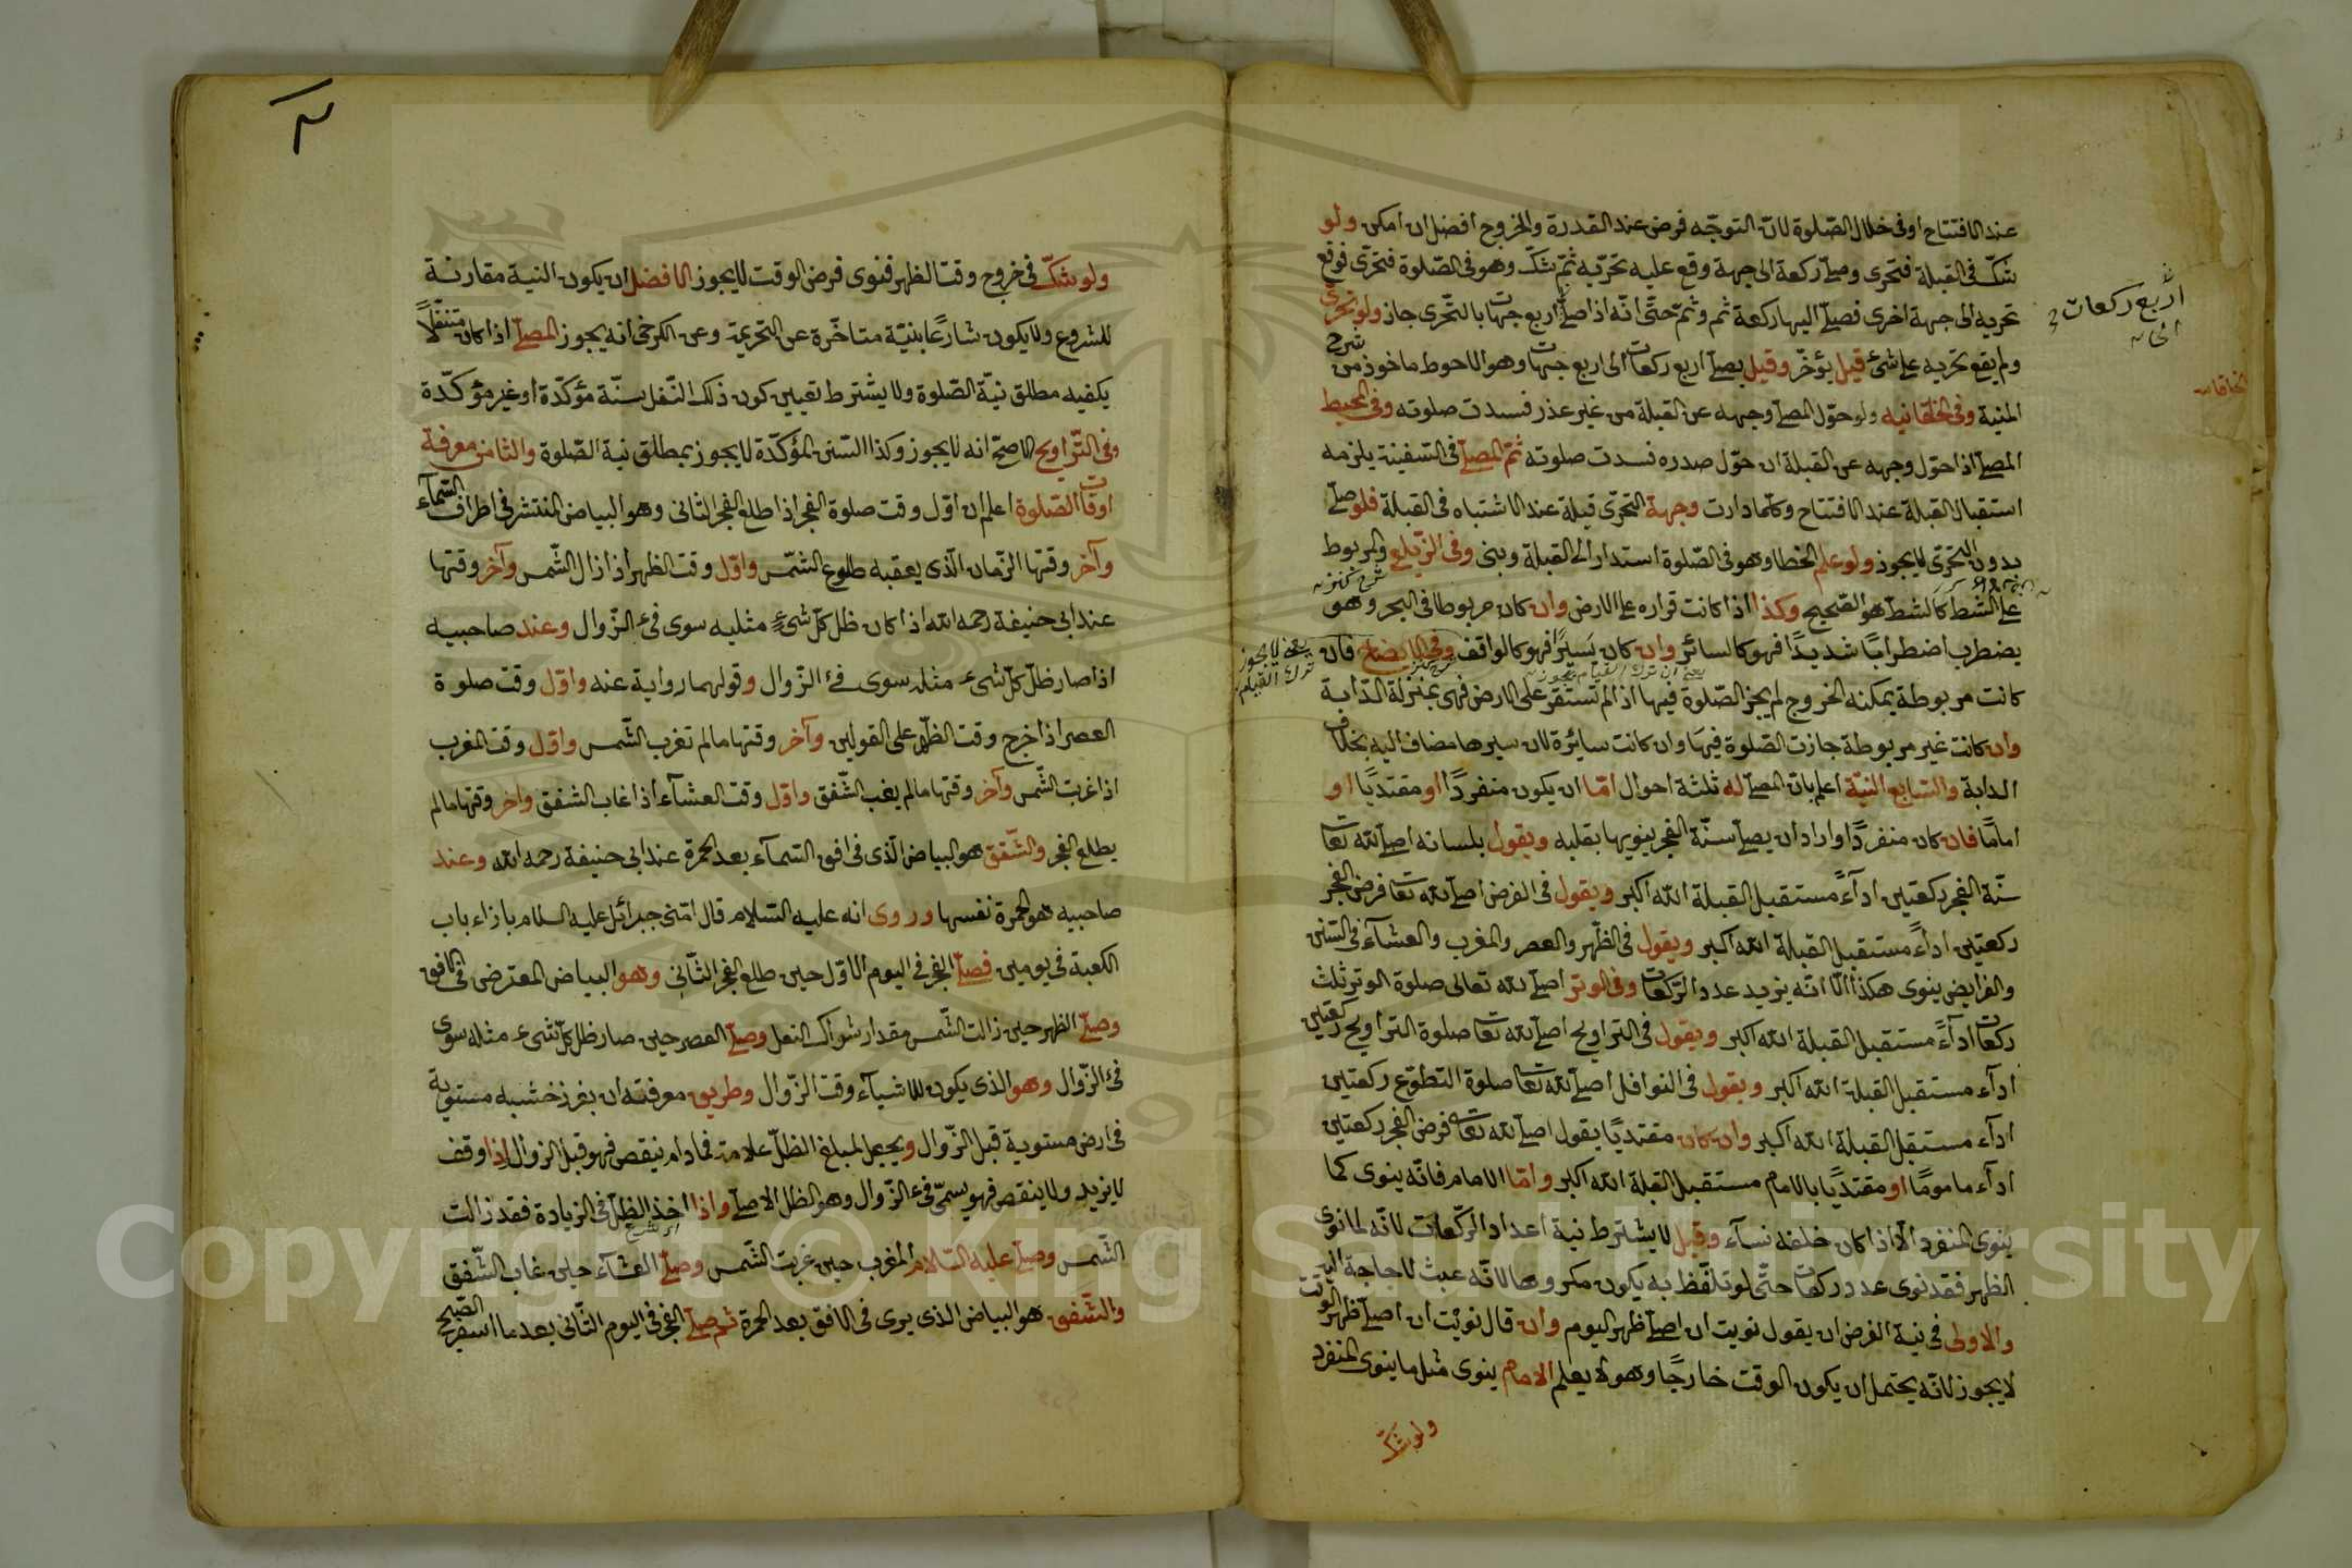 عند الافتتاح او فى خلال الصّلوة لانّ التوجّه فرض عند القدرة والخروج افضل ان امكن ولو
شكّ فى القبلة فتحرى وصلّى ركعة الى جهة وقع عليه تحرّيه ثمّ شكّ وهو فى الصّلوة فتحرّى فوقع
تحريه الى جهة اخرى فصلّى اليها ركعة ثم وثمّ حتّى انّه اذا صلّى اربع جهات بالتحّرى جاز ولو تحرّى
ولم يقع تحريه على شئ قيل يؤخّر وقيل يصلّى اربع ركعات الى اربع جهات وهو الاحوط ماخوذ من شرح
المنية وفى الخاقانيه ولو حوّل المصلّى وجهه عن القبلة من غير عذر فسدت صلوته وفى المحيط
المصلّى اذا حوّل وجهه عن القبلة ان حوّل صدره فسدت صلوته ثمّ المصلّى فى السّفينة يلزمه
استقبال القبلة عند الافتتاح وكلّما دارت وجهة التحرّى قبلة عند الاشتباه فى القبلة فلو صلّى
بدون التحرّى لا يجوز ولو علم الخطا وهو فى الصّلوة استدار الى القبلة وبنى وفى الزّيلعى والمربوط
على الشط كالشطّ هو الصّحيح وكذا اذا كانت قراره على الارض وان كان مربوطا فى البحر وهو
يضطرب اضطرابًا شديدًا فهو كالسائر وان كان يَسيرًا فهو كالواقف وفى الايضاح فان
كانت مربوطة يمكنه الخروج لم يجز الصّلوة فيها اذا لم تستقر على الارض فهى بمنزلة الدّابة
وان كانت غير مربوطة جازت الصّلوة فيهَا وان كانت سائرة لان سيرها مضاف اليه بخلاف
الدابة والسّابع النيّة اعلم بانّ المصلّى له ثلثة احوال امّا ان يكون منفردًا او مقتديًا او
امامًا فان كان منفردًا واراد ان يصلّى سنّة الفجر ينويها بقلبه ويقول بلسانه اصلّى لله تعالى
سنّة الفجر ركعتين اداءً مستقبل القبلة الله اكبر ويقول فى الفرض اصلّى لله تعالى فرض الفجر
ركعتين اداءً مستقبل القبلة الله اكبر ويقول فى الظّهر والعصر والمغرب والعشآء فى السّنن
والفرايض ينوى هكذا الّا انّه يزيد عدد الرّكعات وفى الوتر اصلّى لله تعالى صلوة الوتر ثلث
ركعات اداءً مستقبل القبلة الله اكبر ويقول فى التراويح اصلّى لله تعالى صلوة التراويح ركعتين
ادآء مستقبل القبلة الله اكبر ويقول فى النوافل اصلّى لله تعالى صلوة التطوّع ركعتين
ادآء مستقبل القبلة الله اكبر وان كان مقتديًا يقول اصلّى لله تعالى فرض الفجر ركعتين
ادآء مامومًا او مقتديًا بالامام مستقبل القبلة الله اكبر وامّا الامام فانّه ينوى كما
ينوى المنفرد الّا اذا كان خلفه نسآء وقيل لا يشترط نية اعداد الرّكعات لانّه لما نوى
الظهر فقد نوى عدد ركعات حتّى لو تلفّظ به يكون مكروها لانّه عبث لا حاجة اليه
والاولى فى نية الفرض ان يقول نويت ان اصلّى ظهر اليوم وان قال نويْت ان اصلّى ظهر الوقت
لا يجوز لانّه يحتمل ان يكون الوقت خارجًا وهو لا يعلم الامام ينوى مثل ما ينوى المنفرد
ولو شكّ
اربع ركعات
يعنى لا يجوز
ترك القيام
يعنى ان ترك القيام يجوز
ولو شكّ فى خروج وقت الظهر فنوى فرض الوقت لا يجوز الافضل ان يكون النية مقارنة
للشروع ولا يكون شارعًا بنيّة متاخّرة عن التحريمة وعن الكرخى انه يجوز المصلّى اذا كان متنفّلًا
يكفيه مطلق نيّة الصّلوة ولا يشترط تعيين كون ذلك النّفل سنّة مؤكدّة او غير مؤكدّة
وفى التّراويح الاصحّ انه لا يجوز وكذا السّنن المؤكدّة لا يجوز بمطلق نية الصّلوة والثامن معرفة
اوقات الصّلوة اعلم ان اوّل وقت صلوة الفجر اذا طلع الفجر الثانى وهو البياض المنتشر فى اطراف السّمآء
وآخر وقتها الزّمان الّذى يعقبه طلوع الشّمس واوّل وقت الظهر اذا زال الشّمس وآخر وقتها
عند ابى حنيفة رحمه الله اذا كان ظلّ كلّ شئٍ مثليه سوى فىء الزّوال وعند صاحبيه
اذا صار ظلّ كلّ شىء مثله سوى فىء الزّوال وقولهما رواية عنه واوّل وقت صلوة
العصر اذا خرج وقت الظّهر على القولين وآخر وقتها ما لم تغرب الشّمس واوّل وقت المغرب
اذا غربت الشّمس وآخر وقتها ما لم يغب الشّفق واوّل وقت العشآء اذا غاب الشفق وآخر وقتها ما لم
يطلع الفجر والشّفق هو البياض الّذى فى افق السّمآء بعد الحمرة عند ابى حنيفة رحمه الله وعند
صاحبيه هو الحمرة نفسها وروى انه عليه السّلام قال امّنى جبرائل عليه السلام بازاء باب
الكعبة فى يومين فصلّى الفجر فى اليوم الاوّل حين طلع الفجر الثّانى وهو البياض المعترض فى الافق
وصلّى الظهر حين زالت الشّمس مقدار شراك النعل وصلّى العصر حين صار ظل كلّ شىء مثله سوى
فىء الزّوال وهو الذى يكون للاشيآء وقت الزّوال وطريق معرفته ان يغرز خشبه مستوية
فى ارض مستوية قبل الزّوال ويجعل لمبلغ الظلّ علامة فما دام ينقص فهو قبل الزوال اذا وقف
لا يزيد ولا ينقص فهو يسمّى فىء الزّوال وهو الظل الاصلى واذا اخذ الظلّ فى الزيادة فقد زالت
الشّمس وصلّى عليه السّلام المغرب حين غربت الشّمس وصلّى العشآء حين غاب الشّفق
والشّفق هو البياض الذى يرى فى الافق بعد الحمرة ثم صلّى الفجر فى اليوم الثّانى بعد ما اسفر الصّبح
Copyright © King Saud University
1957